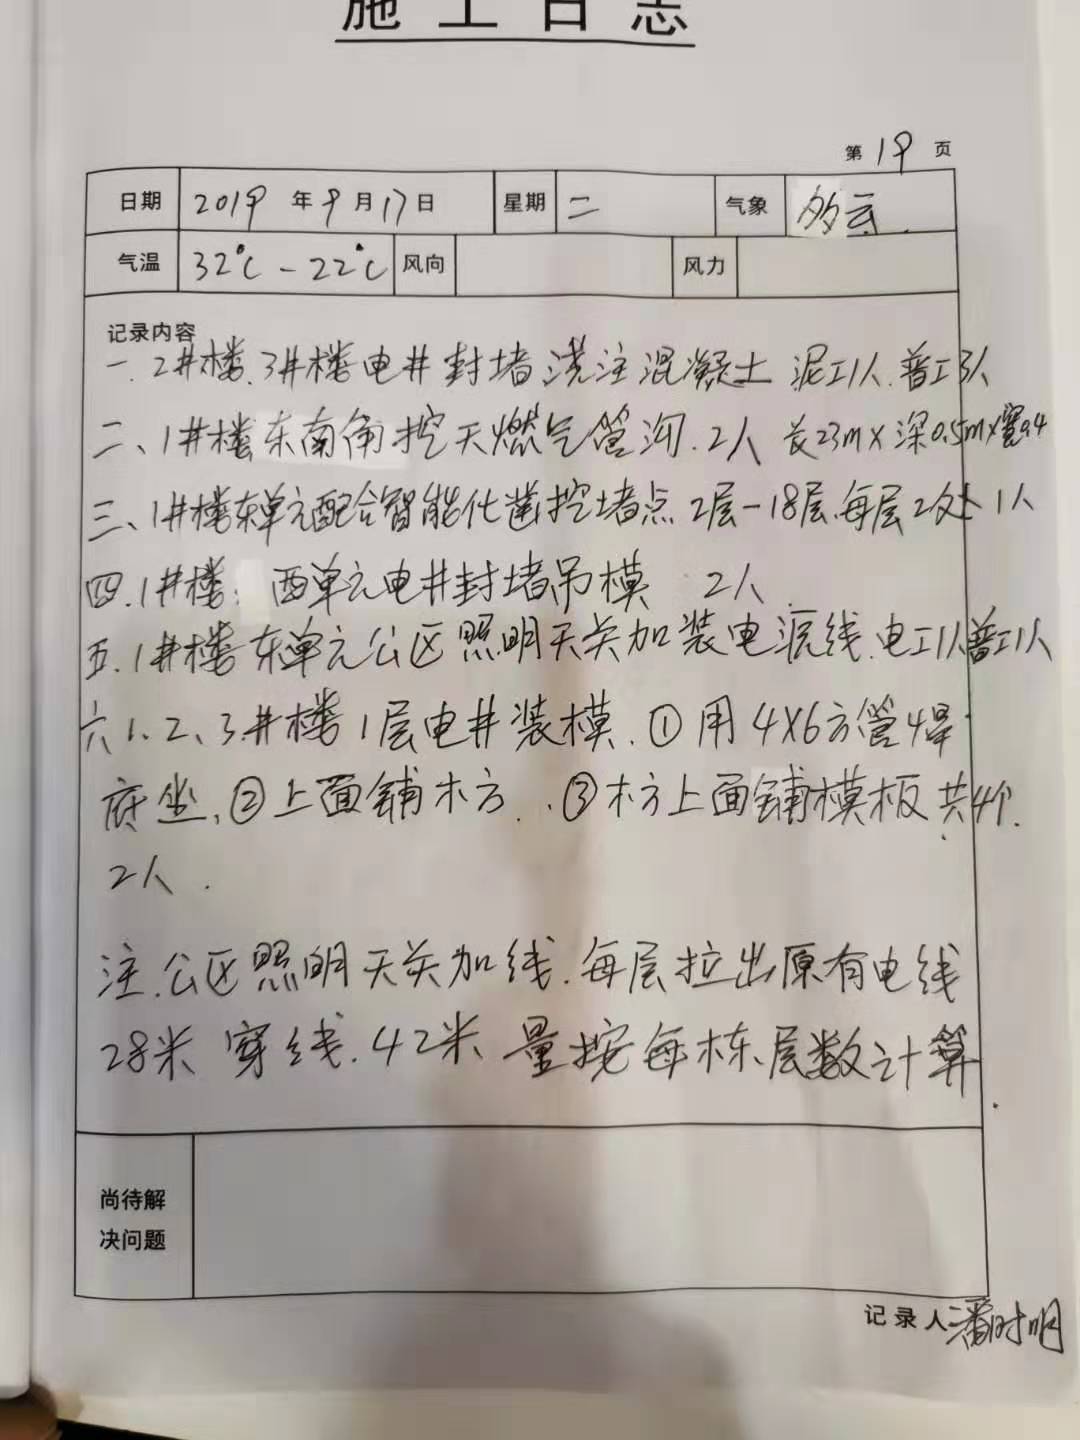 施工日志
第 19 页
日期 2019 年 9 月 17 日 星期 二 气象 多云
气温 32℃-22℃ 风向 风力
记录内容
一.2#楼.3#楼电井封堵浇注混凝土 泥工1人.普工3人
二、1#楼东南角挖天燃气管沟.2人 长23m×深0.5m×宽0.4
三、1#楼东单元配合智能化凿挖堵点2层-18层.每层2处 1人
四.1#楼: 西单元电井封堵吊模 2人
五.1#楼东单元公区照明开关加装电源线.电工1人普工1人
六1、2、3#楼1层电井装模.①用4×6方管焊
底坐,②上面铺木方.③木方上面铺模板共4个.
2人.
注.公区照明开关加线.每层拉出原有电线
28米 穿线.42米 量按每栋层数计算.
尚待解
决问题
记录人 潘时明